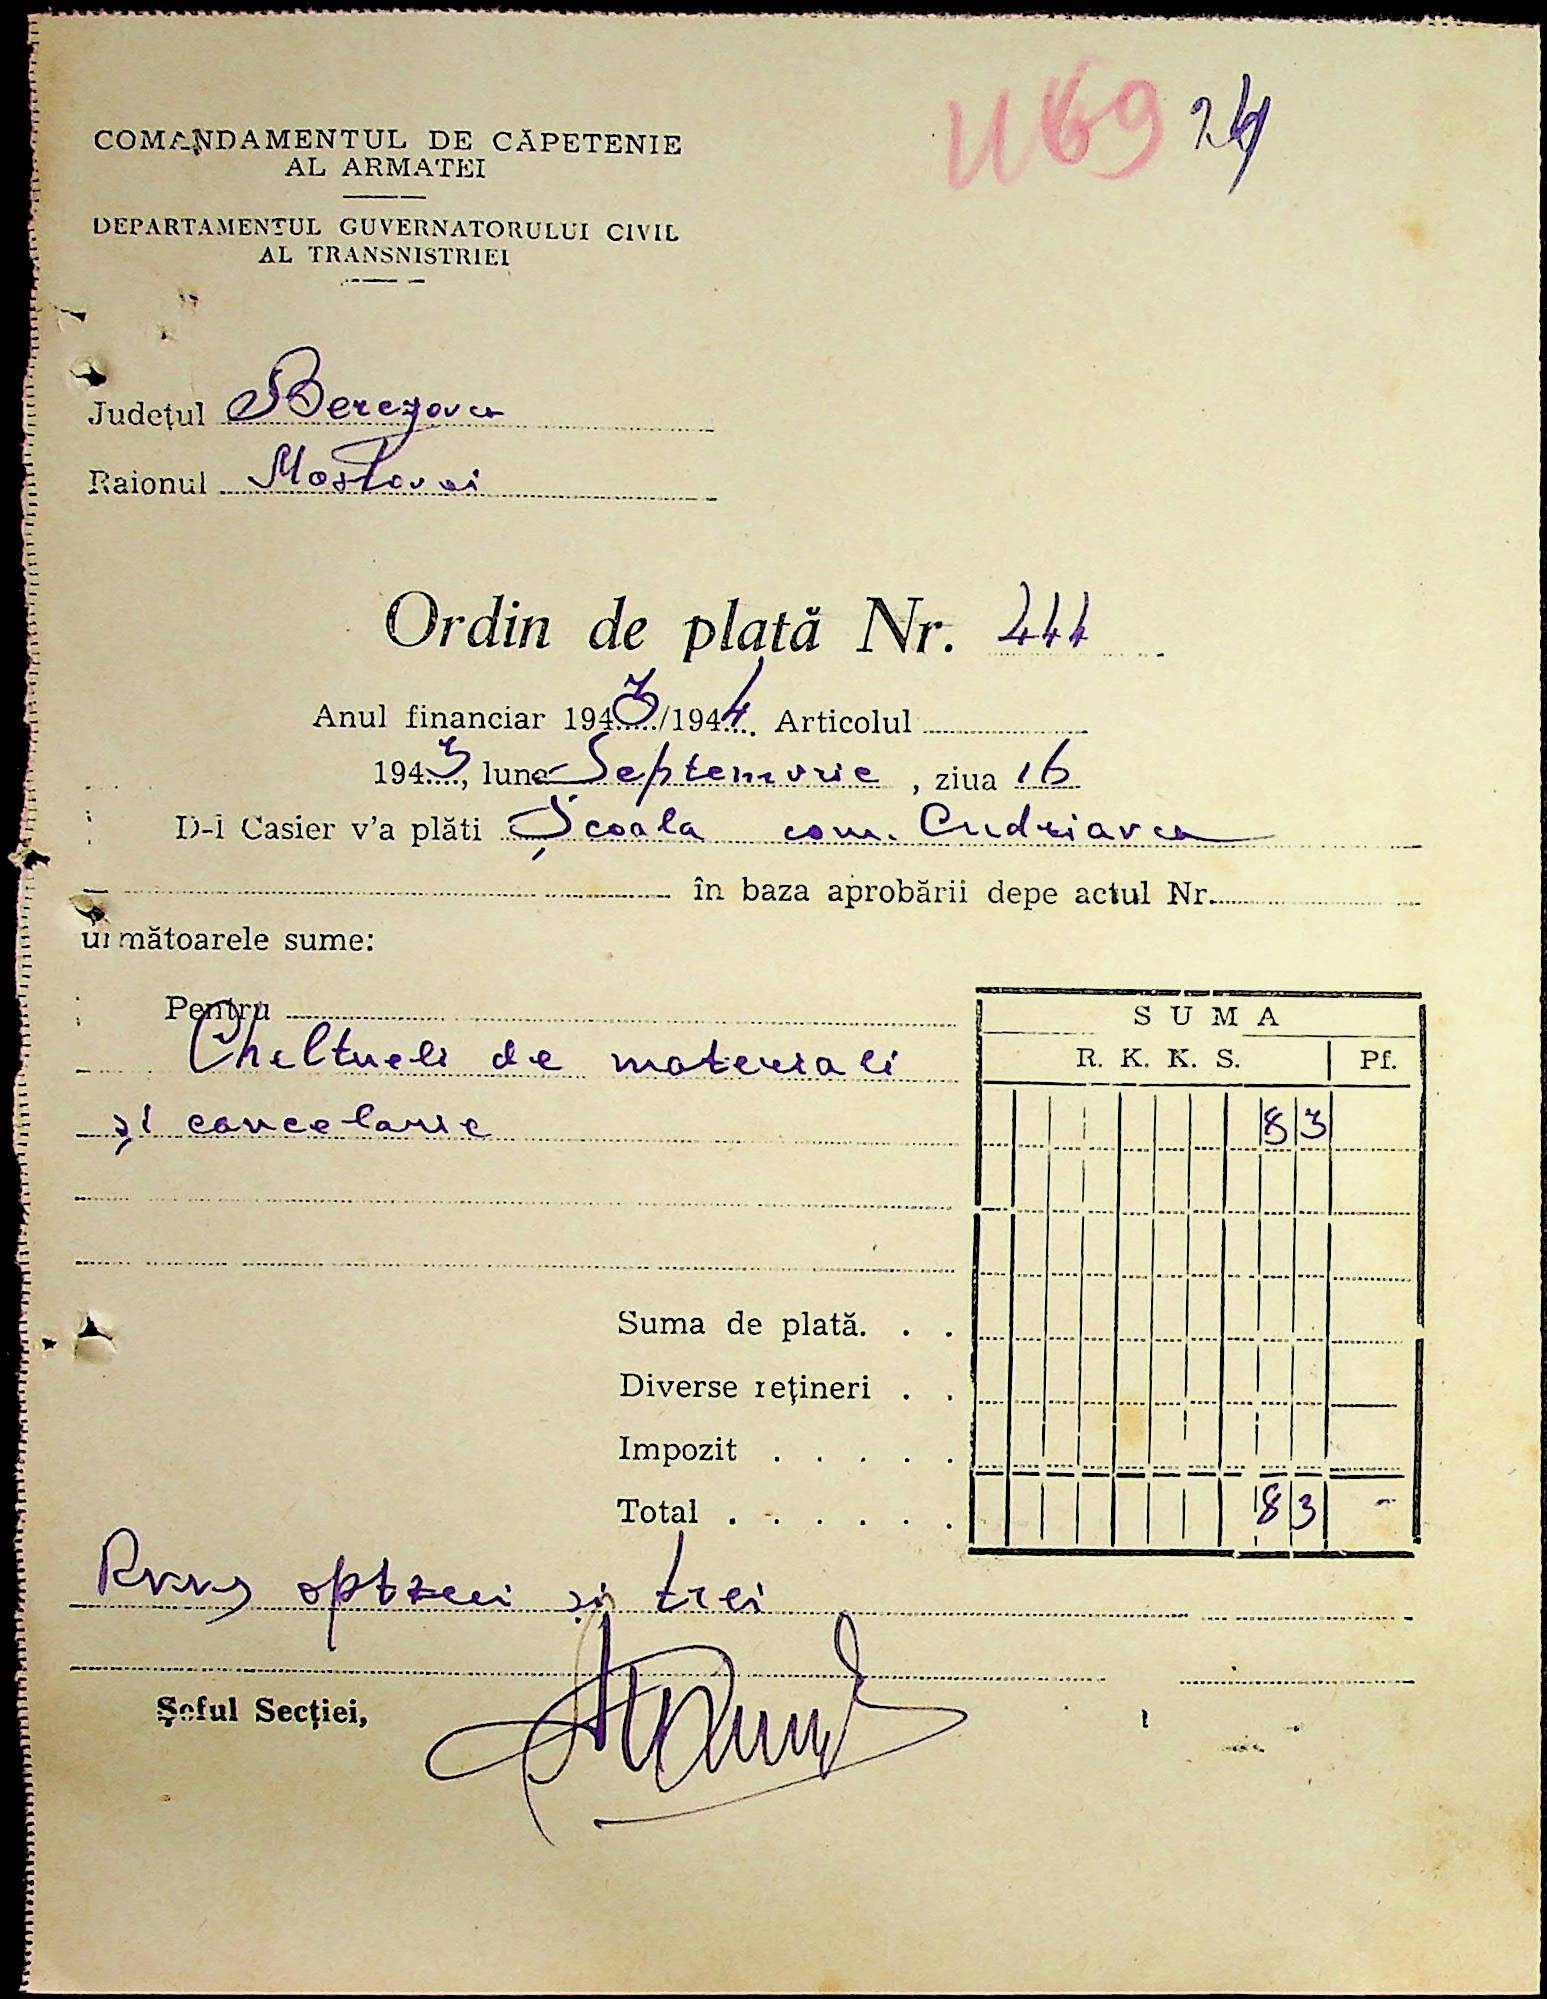 COMANDAMENTUL DE CĂPETENIE
AL ARMATEI
DEPARTAMENTUL GUVERNATORULUI CIVIL
AL TRANSNISTRIEI
24
Județul Berezovca
Raionul Mostovoi
Ordin de plată Nr. 444
Anul financiar 1943/1944. Articolul
1943, luna Septemvrie, ziua 16
D-l Casier v'a plăti Școala com. Cudriavca
în baza aprobării depe actul Nr.
următoarele sume:
Pentru
Cheltueli de materiali
și cancelarie
SUMA
R. K. K. S. Pf.
83
Suma de plată. . .
Diverse rețineri . .
Impozit . . . . .
Total . . . . . . 83 -
optzeci și trei
Șeful Secției,